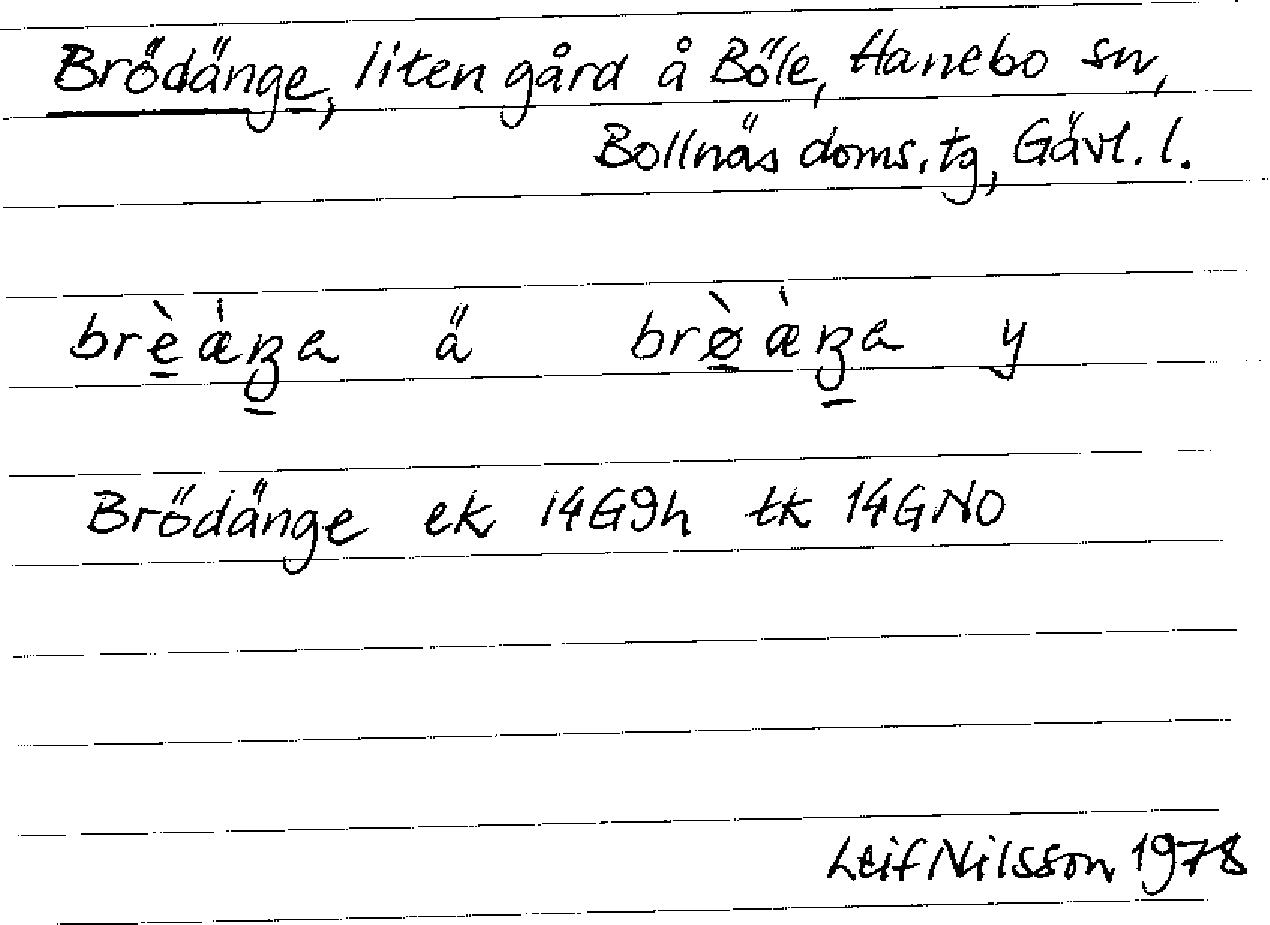 Brödänge, liten gård å Böle, Hanebo sn,
Bollnäs doms. tg, Gävl. l.
brè̱æ̀ŋ̱a ä brø̱̀æ̀ŋ̱a y
Brödänge ek 14G9h tk 14GNO
Leif Nilsson 1978